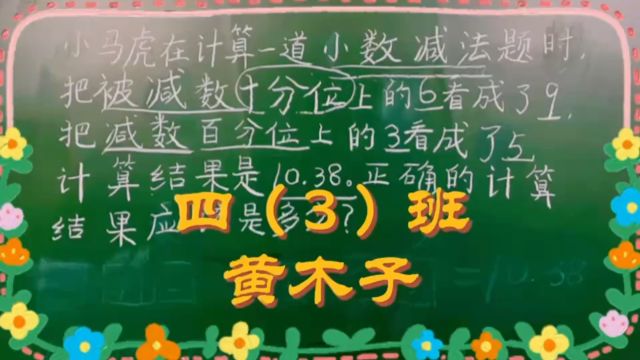 小马虎在计算一道小数减法题时,
把被减数十分位上的6看成了9,
把减数百分位上的3看成了5,
计算结果是10.38。正确的计算
结果应 是多 ?
四（3）班
黄木子
=10.38